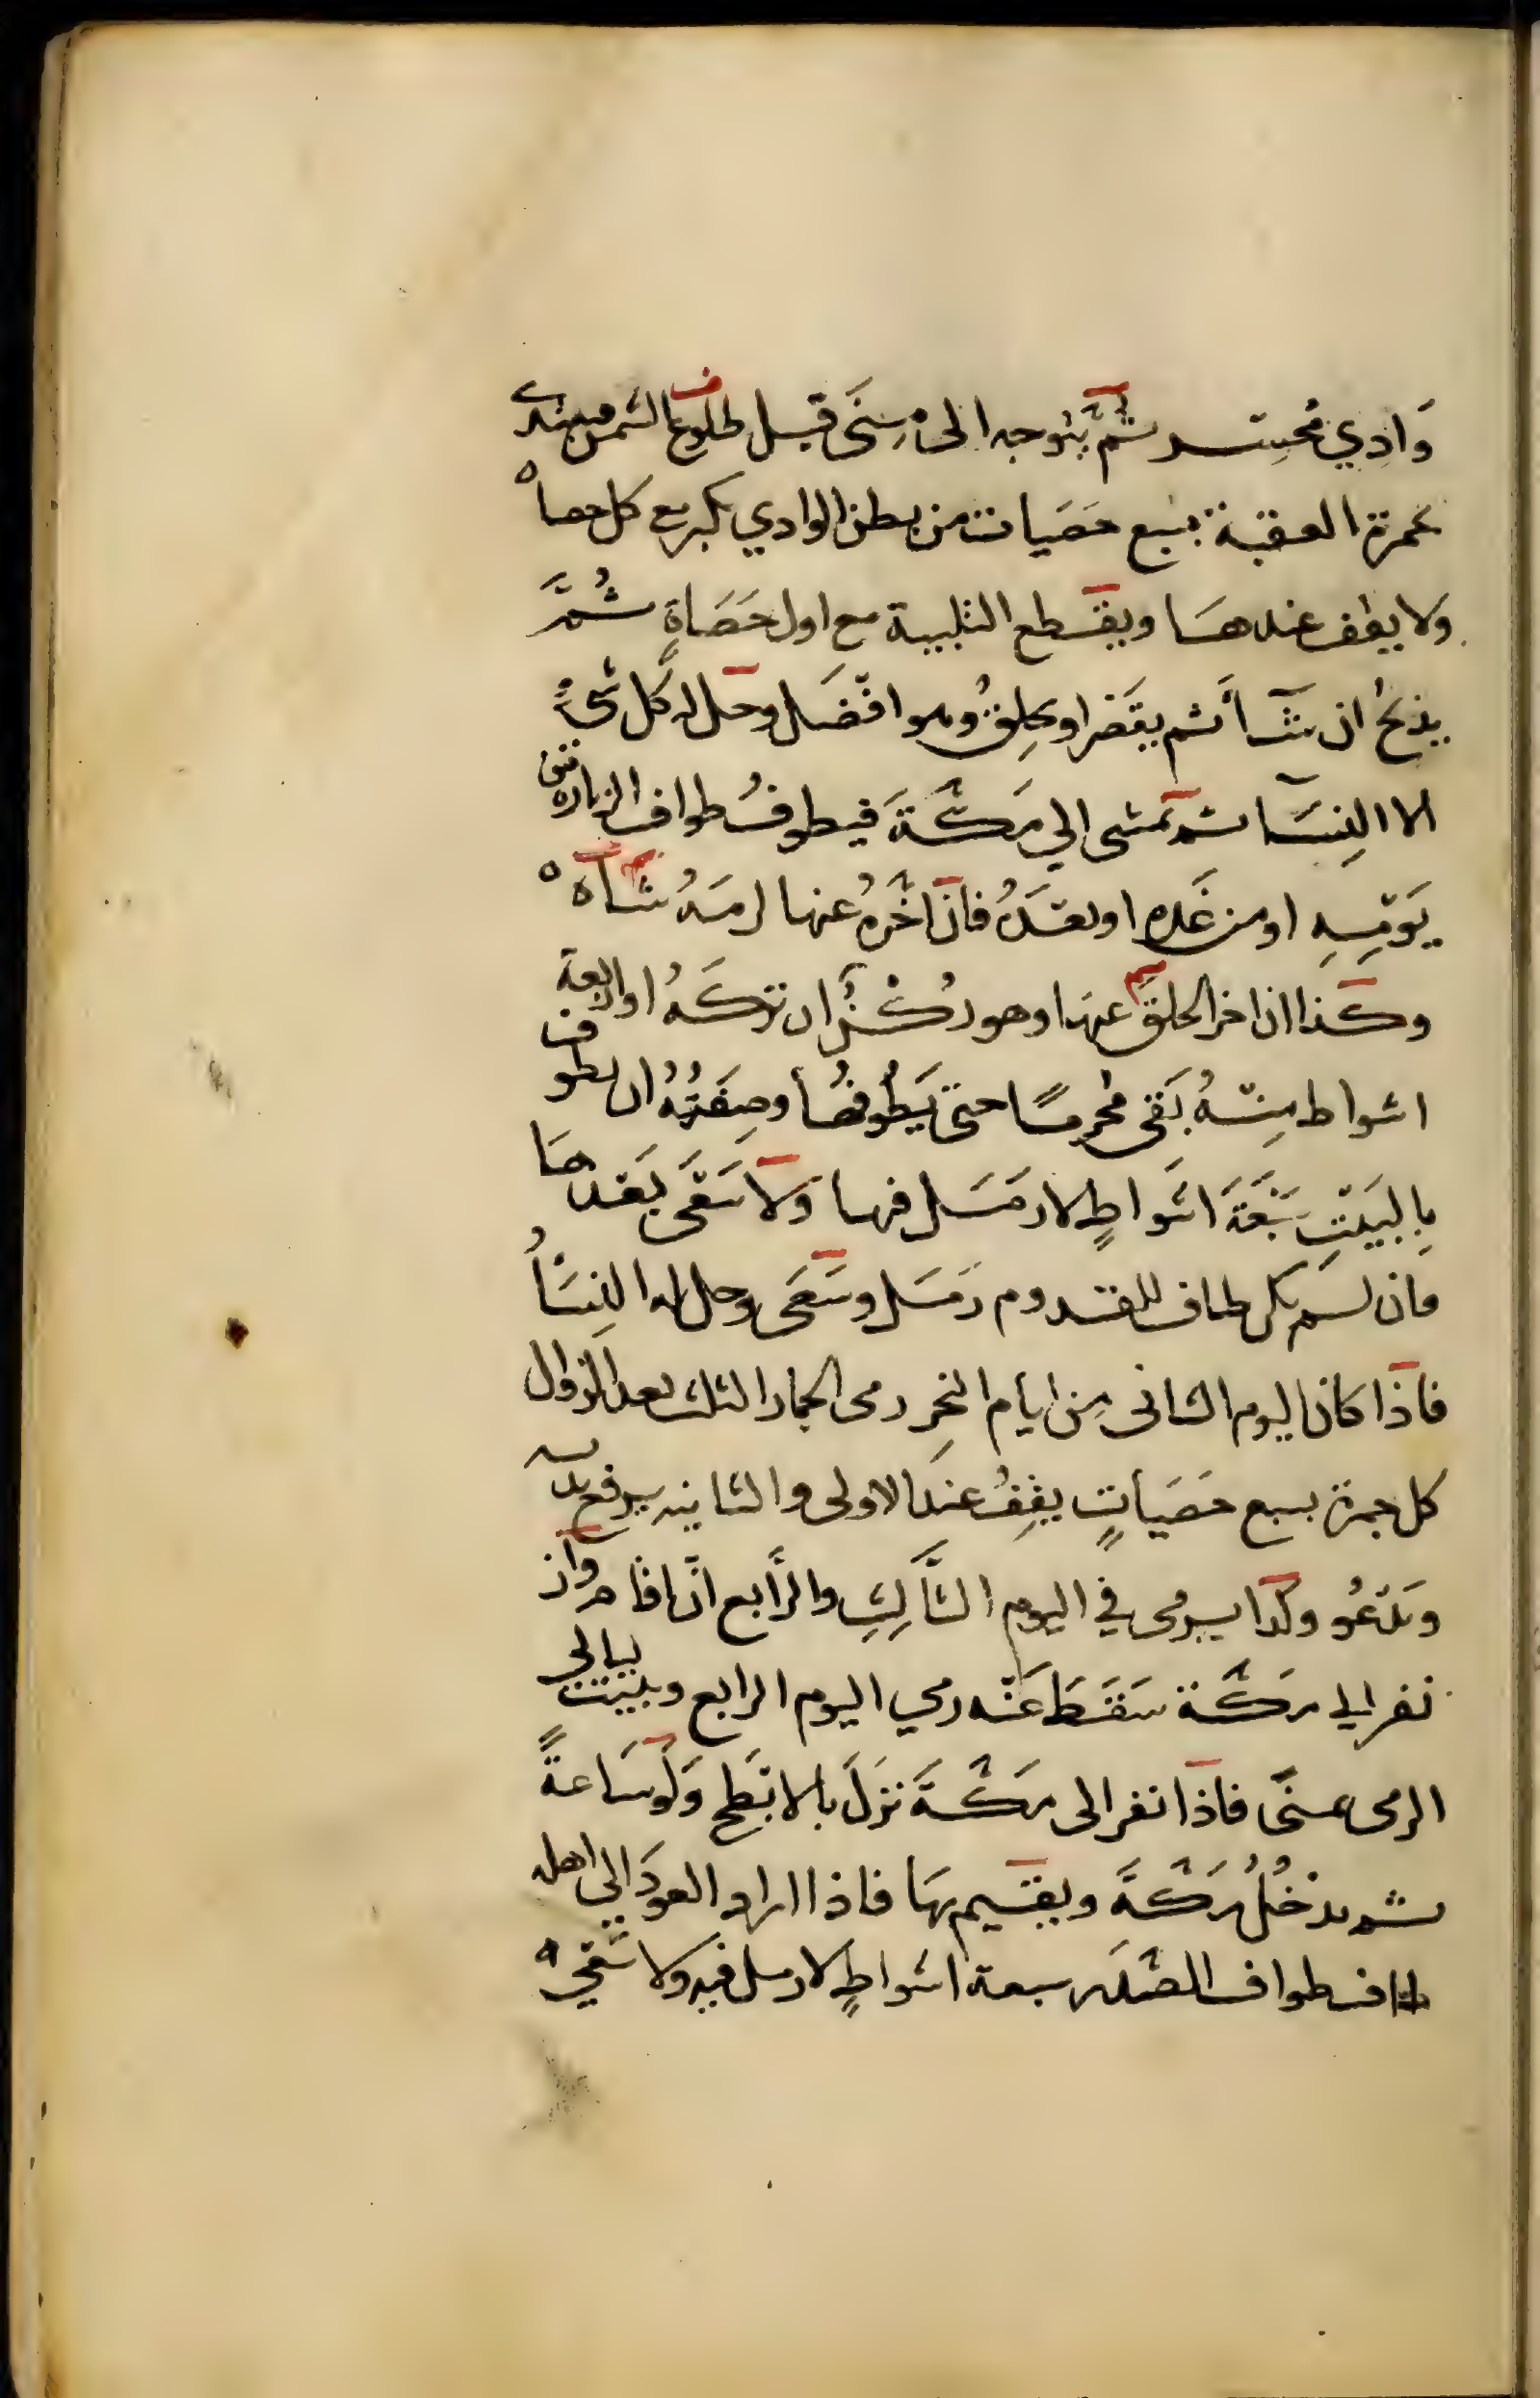 وَادِي مُحَسِّر ثُمَّ يتوجه الى مِنَى قبل طلوع الشمس فيبتدي
بجمرة العقبة بسبع حَصَيات من بطن الوادي يكبر مع كل حصاه
ولا يقف عندهَا ويقطع التلبية مع اول حَصَاةٍ ثُمَّ
يذبحُ ان شآأ ثم يقَصر او يحلِقُ وهو افضَل وحل له كل شىءً
الا النِسَآ ثم يمشى الي مَكَّةَ فيطوفُ طواف الزياره من
يَوْمِهِ او من غَدِهِ او بعدَهُ فان اخَّرهُ عنها لزمَهُ شاه
وكذا ان اخر الحلقَ عنها وهو رُكنٌ ان تركَهُ او اربعة
اشواط مِنْهُ بَقى مُحرِمًا حتى يَطُوفهُا وصِفَتُهُ ان يطوف
بِالبَيْتِ سَبْعَةَ اشَواطٍ لا رمَلَ فيها وَلا سَعْىَ بَعْدهَا
فان لم يكن طاف للقدوم رَمَلَ وسَعَى وحل له النِسَأُ
فاذا كان اليوم الثانى مِن ايام النحِر رمى الجمار الثلث بعد الزوال
كل جمرة بسبع حَصَيَاتٍ يقِفُ عندَ الاولى والثانيه يرفع يديه
ويَدْعُو وكذا يرمى في اليوم الثَّالِثِ والرَّابع ان اقام وان
نفر الي مكَّة سَقَطَ عَنْه رمي اليوم الرابع ويبيت ليالي
الرمى بمنىً فاذا نفر الى مَكَّةَ نزلَ بالابَطَح وَلَو سَاعةً
ثم يدْخُلُ مَكَّةَ ويقيم بهَا فاذا اراد العودَ الي اهله
طاف طواف الصَّدَر سبعة اشواطٍ لا رمل فيه ولا سَعْي